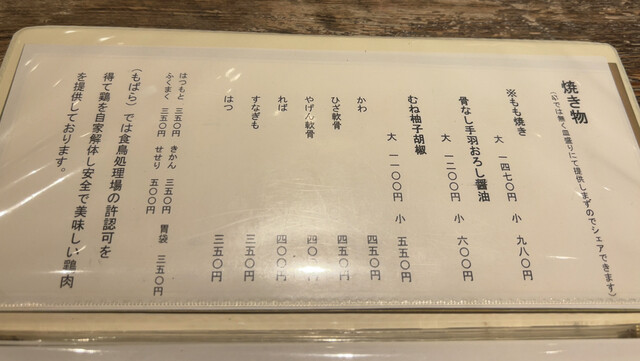 焼き物
(串では無く皿盛りにて提供しまずのでシェアできます)
※もも焼き 大 一四七〇円 小 九八〇円
骨なし手羽おろし醤油
大 一二〇〇円 小 六〇〇円
むね柚子胡椒
大 一一〇〇円 小 五五〇円
かわ 四五〇円
ひざ軟骨 四五〇円
やげん軟骨
れば 四〇〇円
すなぎも 三五〇円
はつ 三五〇円
はつもと 三五〇円 きかん 三五〇円 胃袋 三五〇円
ふくまく 三五〇円 せせり 五〇〇円
(もばら)では食鳥処理場の許認可を
得て鶏を自家解体し安全で美味しい鶏肉
を提供しております。